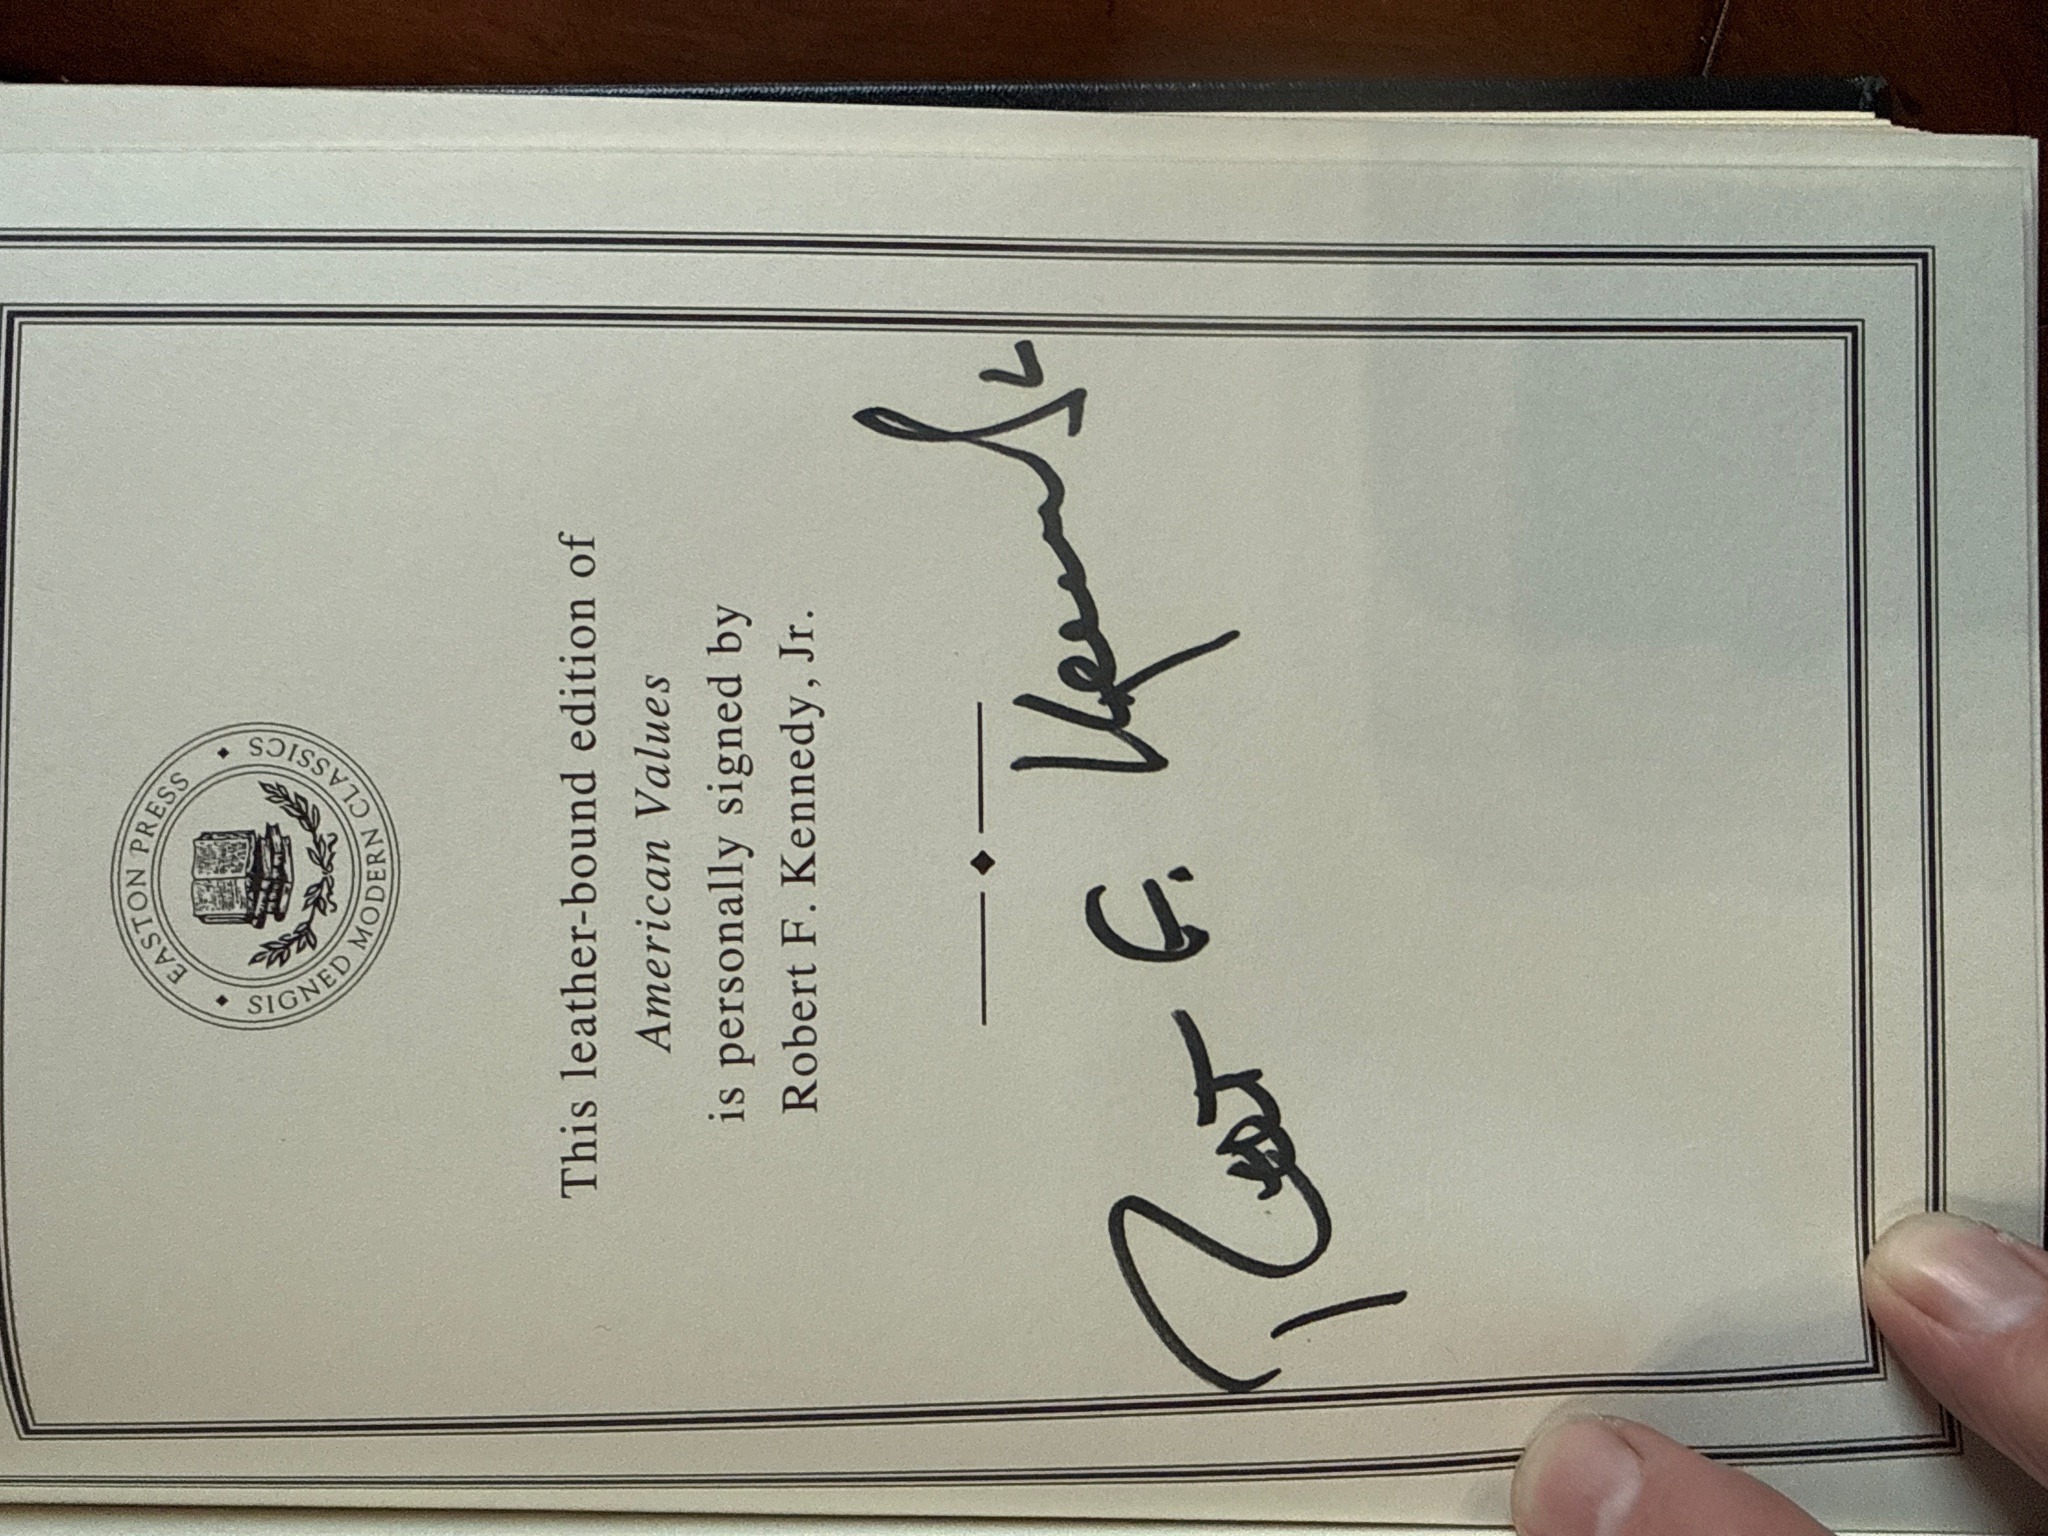 EASTON PRESS
SIGNED MODERN CLASSICS
This leather-bound edition of
American Values
is personally signed by
Robert F. Kennedy, Jr.
Robert F. Kennedy Jr